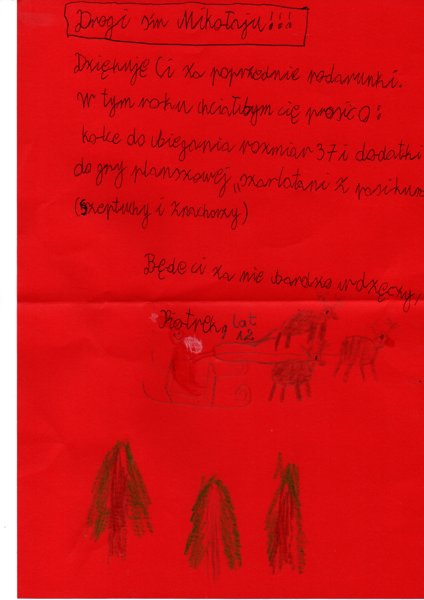 Drogi św Mikołaju!!!
Dziękuję Ci za poprzednie podarunki.
W tym roku chciałbym cię prosić o:
kolce do biegania rozmiar 37 i dodatki
do gry planszowej "szarlatani z pasikurowic"
(Szeptuchy i Znachorzy)
Będę ci za nie bardzo wdzięczny,
lat
12